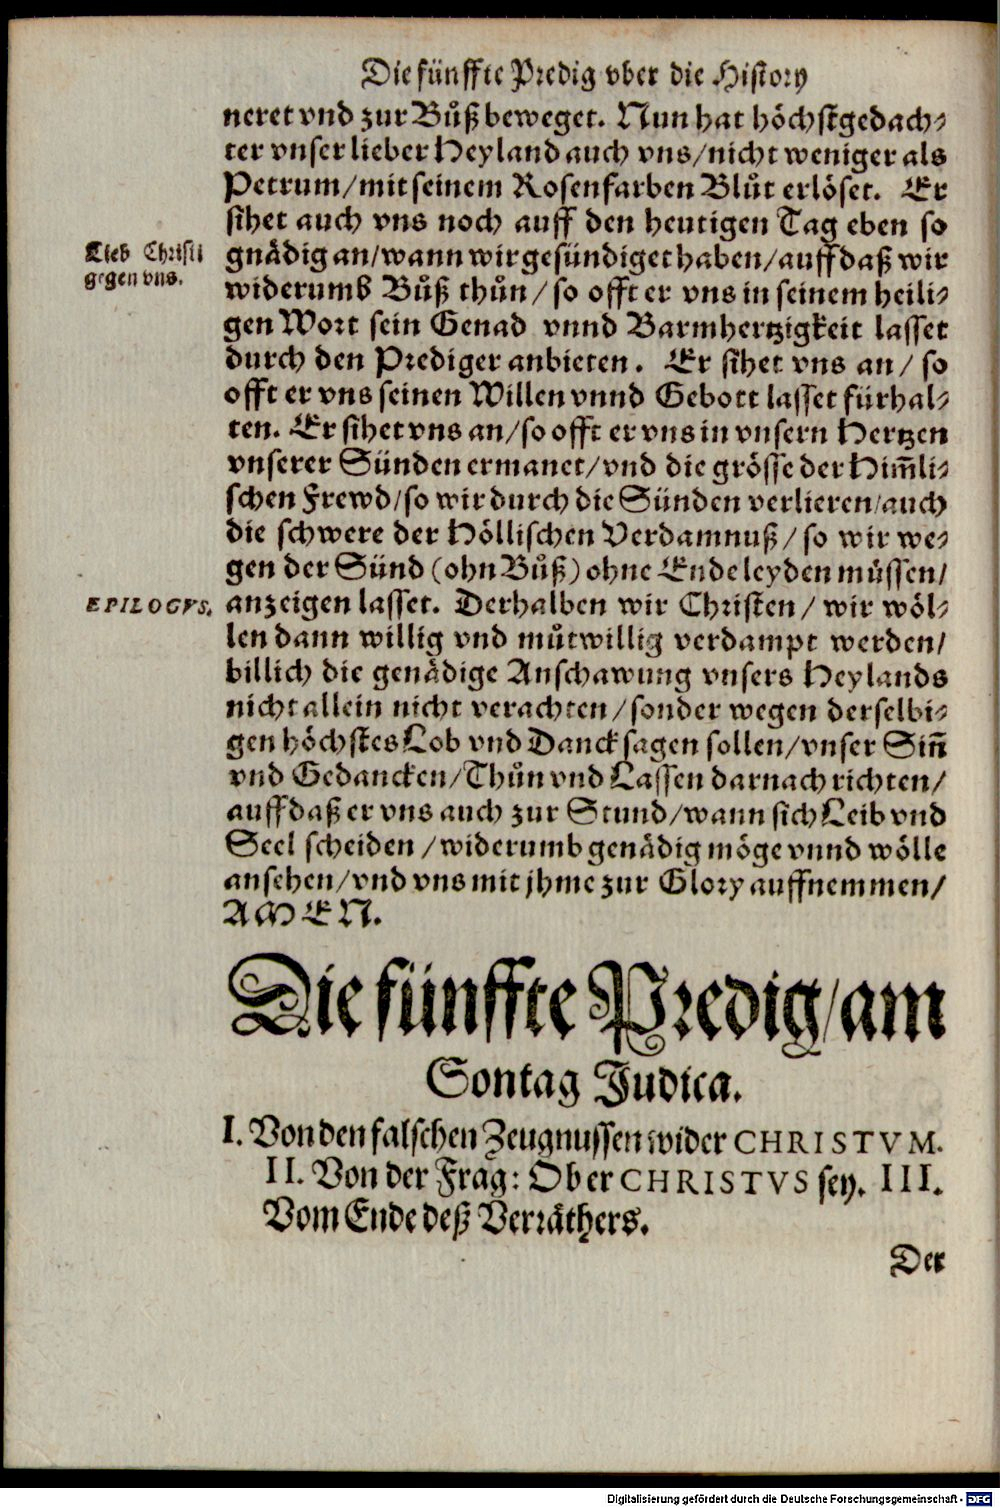 Die fünffte Predig vber die History
neret vnd zur Bůß beweget. Nun hat höchstgedach⸗
ter vnser lieber Heyland auch vns/nicht weniger als
Petrum/mit seinem Rosenfarben Blůt erlöset. Er
sihet auch vns noch auff den heutigen Tag eben so
Lieb Christi
gegen vns.
gnädig an/wann wir gesündiget haben/auff daß wir
widerumb Bůß thůn/so offt er vns in seinem heili⸗
gen Wort sein Genad vnnd Barmhertzigkeit lasset
durch den Prediger anbieten. Er sihet vns an/so
offt er vns seinen Willen vnnd Gebott lasset fürhal⸗
ten. Er sihet vns an/so offt er vns in vnsern Hertzen
vnserer Sünden ermanet/vnd die grösse der Him̃li⸗
schen Frewd/so wir durch die Sünden verlieren/auch
die schwere der Höllischen Verdamnuß/so wir we⸗
gen der Sünd (ohn Bůß) ohne Ende leyden müssen/
EPILOGVS.
anzeigen lasset. Derhalben wir Christen/wir wöl⸗
len dann willig vnd můtwillig verdampt werden/
billich die genädige Anschawung vnsers Heylands
nicht allein nicht verachten/sonder wegen derselbi⸗
gen höchstes Lob vnd Danck sagen sollen/vnser Sin̄
vnd Gedancken/Thůn vnd Lassen darnach richten/
auff daß er vns auch zur Stund/wann sich Leib vnd
Seel scheiden/widerumb genädig möge vnnd wölle
ansehen/vnd vns mit jhme zur Glory auffnemmen/
AMEN.
Die fünffte Predig/am
Sontag Judica.
I. Von den falschen Zeugnussen wider CHRISTVM.
II. Von der Frag: Ob er CHRISTVS sey. III.
Vom Ende deß Verräthers.
Der
Digitalisierung gefördert durch die Deutsche Forschungsgemeinschaft - DFG